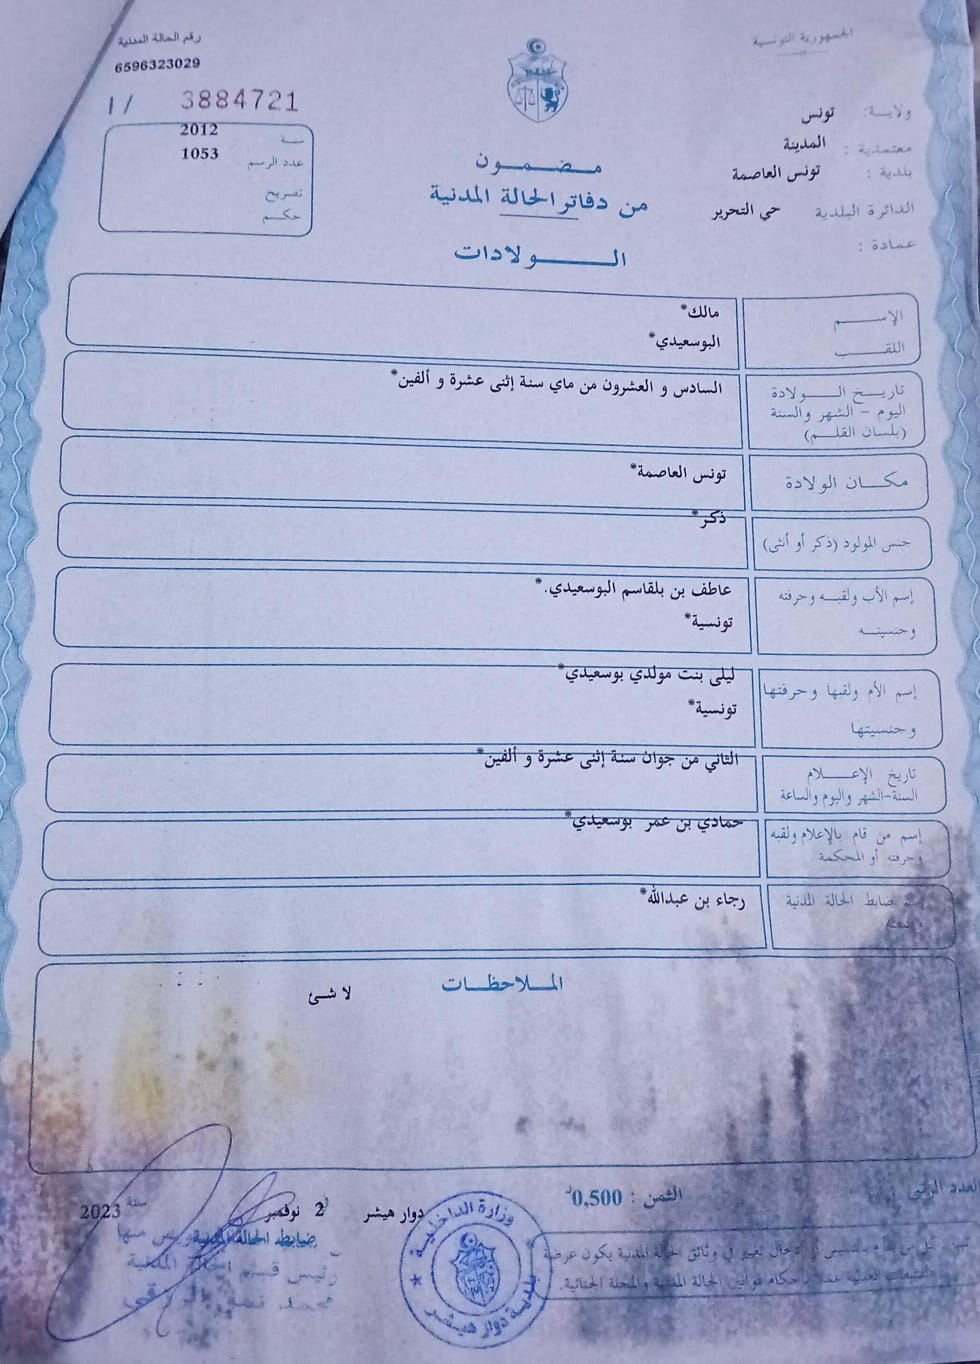 الجمهورية التونسية
رقم الحالة المدنية
6596323029
1/ 3884721
سنة 2012
عدد الرسم 1053
تصريح
حكم
ولاية: تونس
معتمدية : المدينة
بلدية : تونس العاصمة
الدائرة البلدية حي التحرير
عمادة :
مضمون
من دفاتر الحالة المدنية
الولادات
الإسم مالك*
اللقب البوسعيدي*
تاريخ الولادة السادس و العشرون من ماي سنة إثنى عشرة و ألفين*
اليوم - الشهر والسنة
(بلسان القلم)
مكان الولادة تونس العاصمة*
جنس المولود (ذكر أو أنثى) ذكر*
إسم الأب ولقبه وحرفته عاطف بن بلقاسم البوسعيدي.*
وجنسيته تونسية*
إسم الأم ولقبها وحرفتها ليلى بنت مولدي بوسعيدي*
وجنسيتها تونسية*
تاريخ الإعلام الثاني من جوان سنة إثنى عشرة و ألفين*
السنة-الشهر واليوم والساعة
إسم من قام بالإعلام ولقبه حمادي بن عمر بوسعيدي*
وحرفته أو المحكمة
إسم ضابط الحالة المدنية رجاء بن عبدالله*
الملاحظات
لا شئ
الثمن : 0,500د
دوار هيشر في 2 نوفمبر سنة 2023
ضابط الحالة المدنية
رئيس قسم الحالة المدنية
محمد
وزارة الداخلية
بلدية دوار هيشر
وثائق الحالة المدنية يكون عرضة
للتتبعات العدلية عملا بأحكام قوانين الحالة المدنية والمجلة الجنائية.